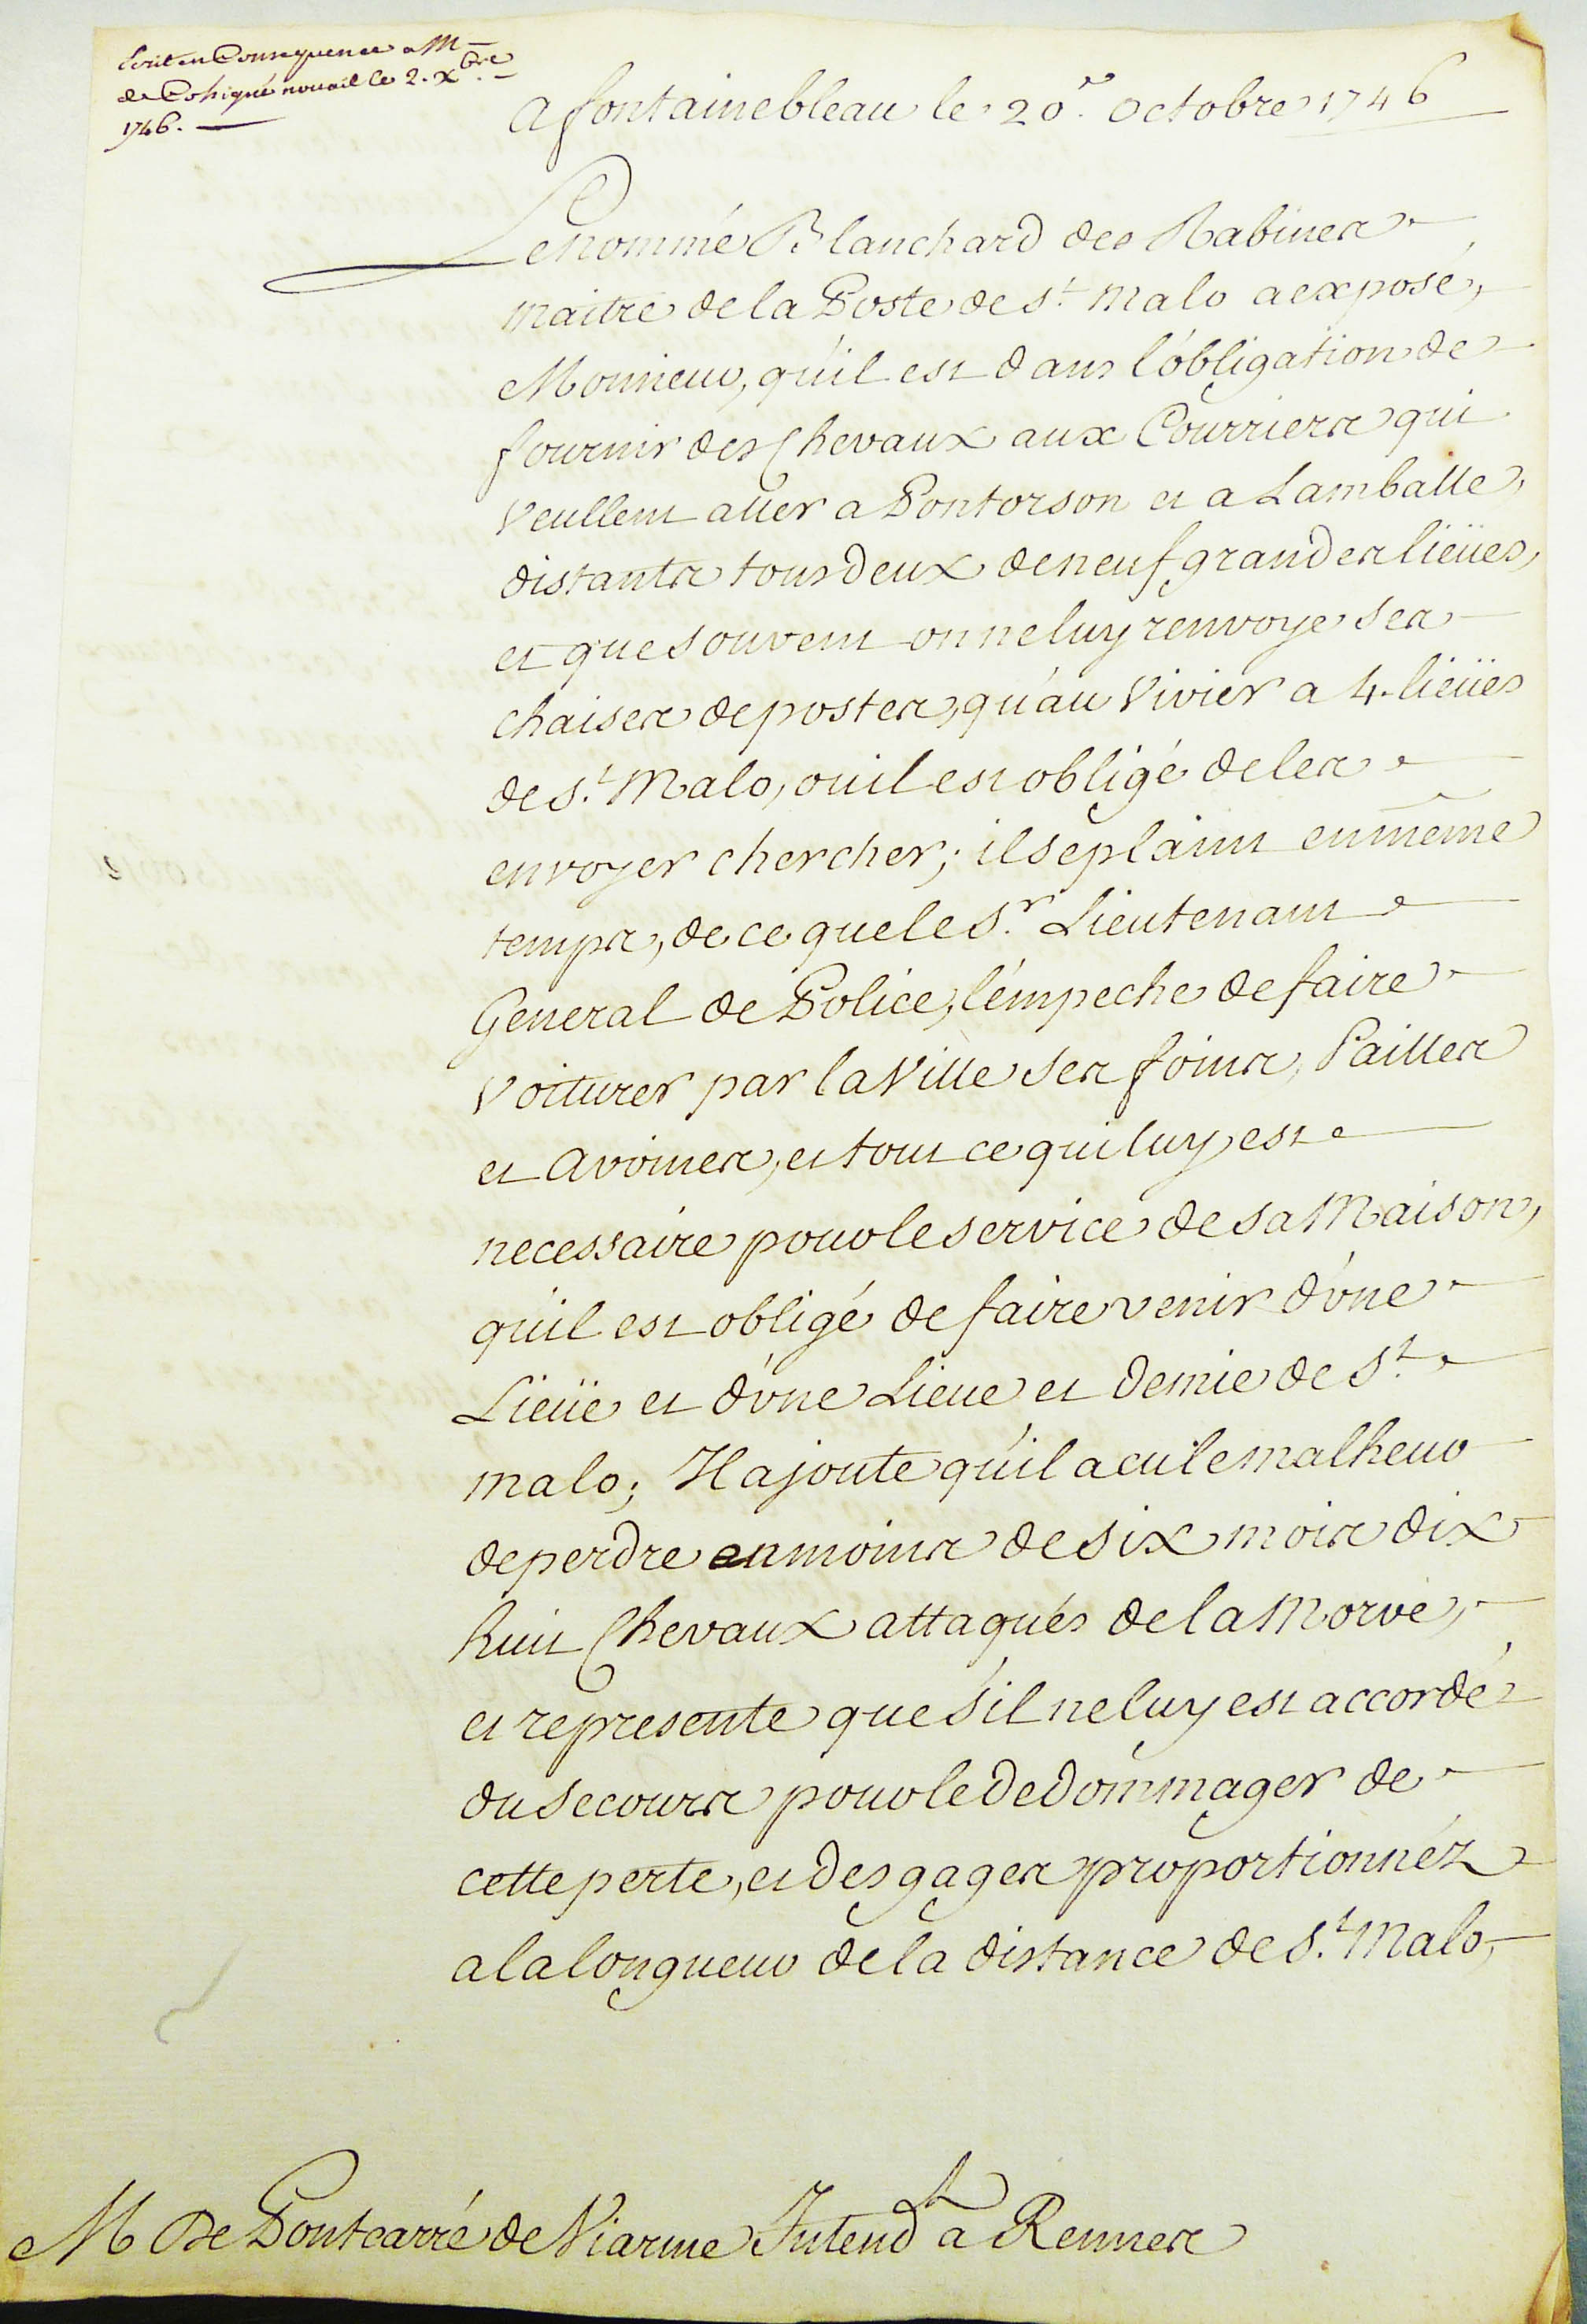 Ecrit en Consequence a M
de Cohigné nouail le 2. Xbre
1746.
a fontainebleau le 20e. Octobre 1746
Le nommé Blanchard des Rabines
maitre de la Poste de St. Malo a exposé,
Monsieur, qu'il est dans l'obligation de
fournir des Chevaux aux Courriers qui
veullent aller a Pontorson et a Lamballe,
distants tous deux de neuf grandes lieües,
et que souvent on ne luy renvoye ses
chaises de postes, qu'au Vivier a 4. lieües
de St. Malo, ou il est obligé de les
envoyer chercher; il se plaint en même
temps, de ce que le Sr. Lieutenant
General de Police, l'émpeche de faire
voiturer par la Ville ses foins, Pailles
et Avoines, et tout ce qui luy est
necessaire pour le service de sa Maison,
qu'il est obligé de faire venir d'vne
Lieüe et d'vne Lieue et demie de St.
malo; Il ajoute qu'il a eu le malheur
de perdre en moins de six mois dix
huit Chevaux attaqués de la Morve,
et represente que s'il ne luy est accordé
du secours pour le dedommager de
cette perte, et des gages proportionnéz
a la longueur de la distance de St. Malo,
M De Pontcarré de Viarme Intendt a Rennes